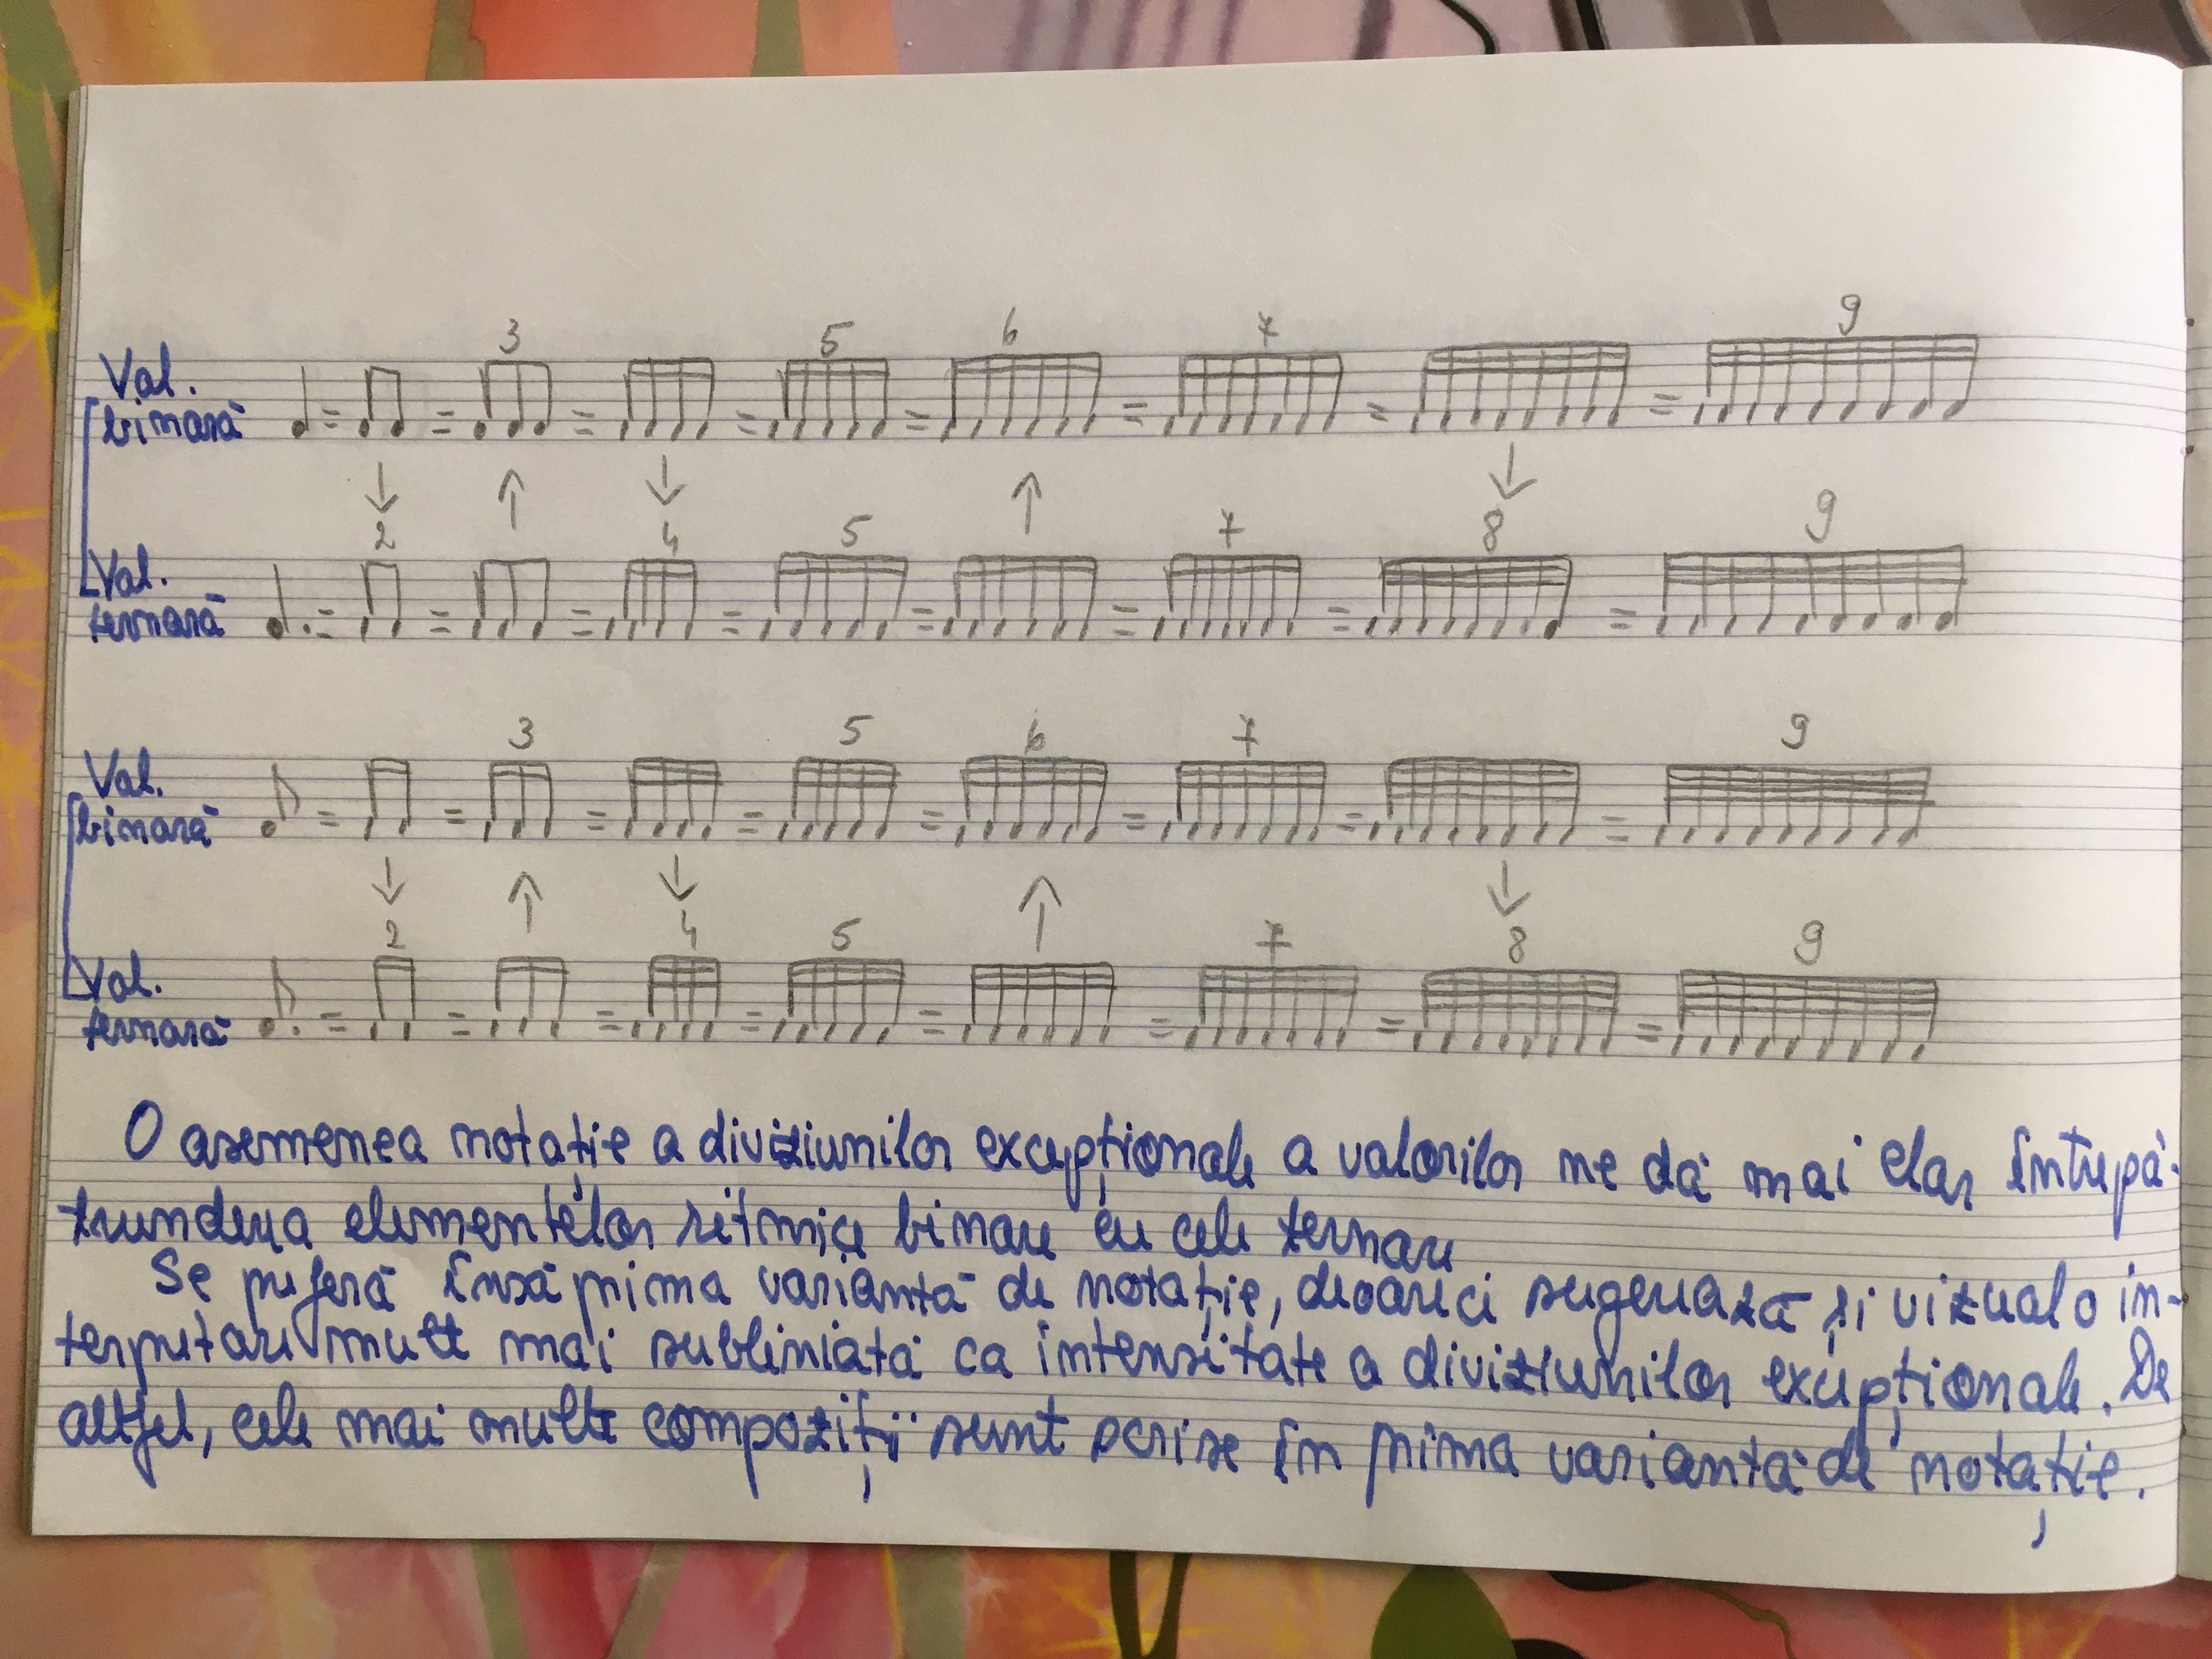 3 5 6 7 9
Val.
binară = = = = = = = =
2 4 5 7 8 9
Val.
ternară = = = = = = = =
3 5 6 7 9
Val.
binară = = = = = = = =
2 4 5 7 8 9
Val.
ternară = = = = = = = =
O asemenea notație a diviziunilor excepționale a valorilor ne dă mai clar întrepă-
trunderea elementelor ritmice binare cu cele ternare
Se preferă însă prima variantă de notație, deoarece sugerează și vizual o in-
terpretare mult mai subliniată ca intensitate a diviziunilor excepționale. De
altfel, cele mai multe compoziții sunt scrise în prima variantă de notație.